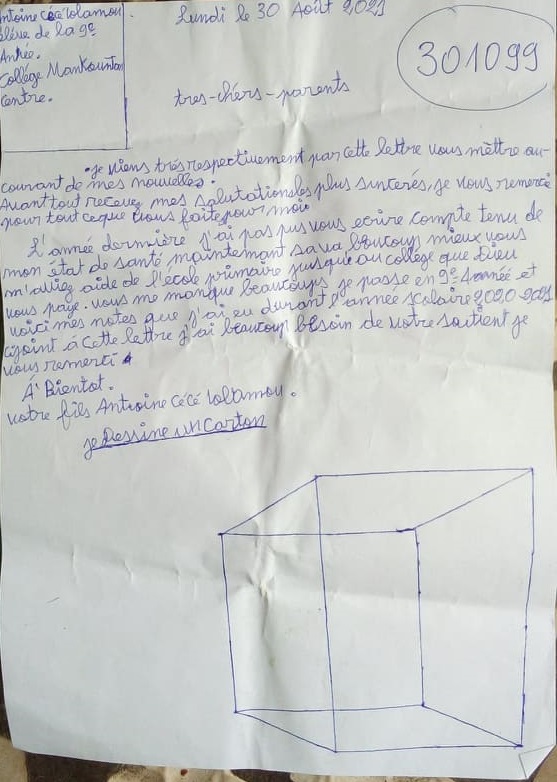 Antoine Cécé Lolamou.
élève de la 9e
Année.
Collège Mankountan
Centre.
Lundi le 30 Août 2021
301099
tres-chers-parents
je viens très respectivement par cette lettre vous mèttre au-
courant de mes nouvelles.
Avant tout recevez mes salutations les plus sinterés, je vous remerci
pour tout ceque vous faite pour moi
L'année dernière j'ai pas pus vous ecrire compte tenu de
mon état de santé maintenant sava beaucoup mieux vous
m'aviez aide de l'école primaire jusque au collège que Dieu
vous paye. vous me manque beaucoups je passe en 9e année et
voici mes notes que j'ai eu durant l'année scolaire 2020-2021
cijoint à cette lettre j'ai beaucoup besoin de votre soutient je
vous remerci
A' Bientot.
votre fils Antoine Cécé Lolamou.
je Dessine un Carton